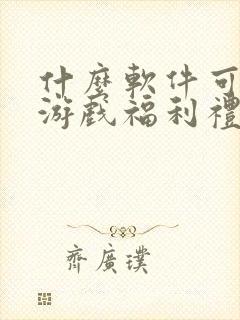 什麼軟件可
游戲福利禮
齊廣璞